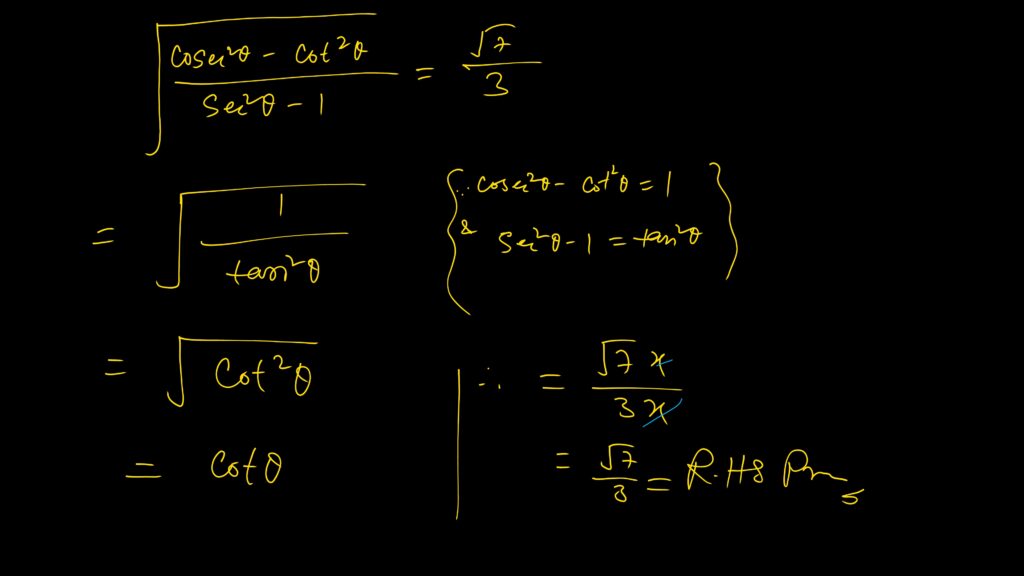 √((cosec²θ - cot²θ)/(sec²θ - 1)) = √7/3
= √(1/tan²θ) {∵ cosec²θ - cot²θ = 1
& sec²θ - 1 = tan²θ}
= √(cot²θ)
= cotθ
∴ = √7x/3x
= √7/3 = R.HS